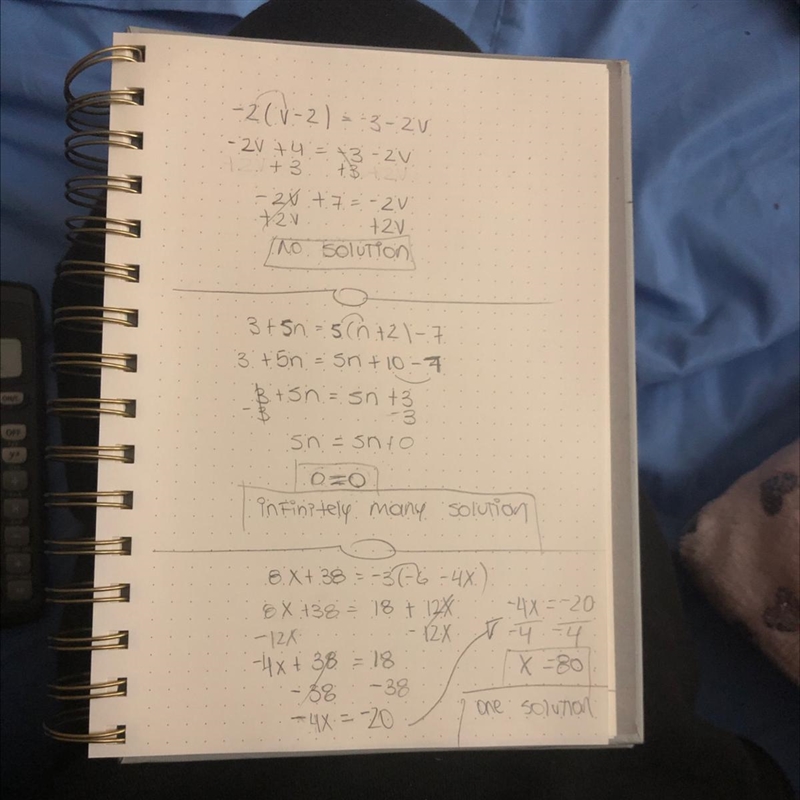 -2(v-2) = -3-2v
-2v+4 = -3-2v
+3 +3
-2v+7 = -2v
+2v +2v
no solution
3+5n = 5(n+2)-7
3+5n = 5n+10-7
3+5n = 5n+3
-3 -3
5n = 5n+0
0=0
infinitely many solution
8x+38 = -3(-6-4x)
8x+38 = 18+12x
-12x -12x
-4x+38 = 18
-38 -38
-4x = -20
-4x = -20
-4 -4
x = 80
one solution
OFF
yx